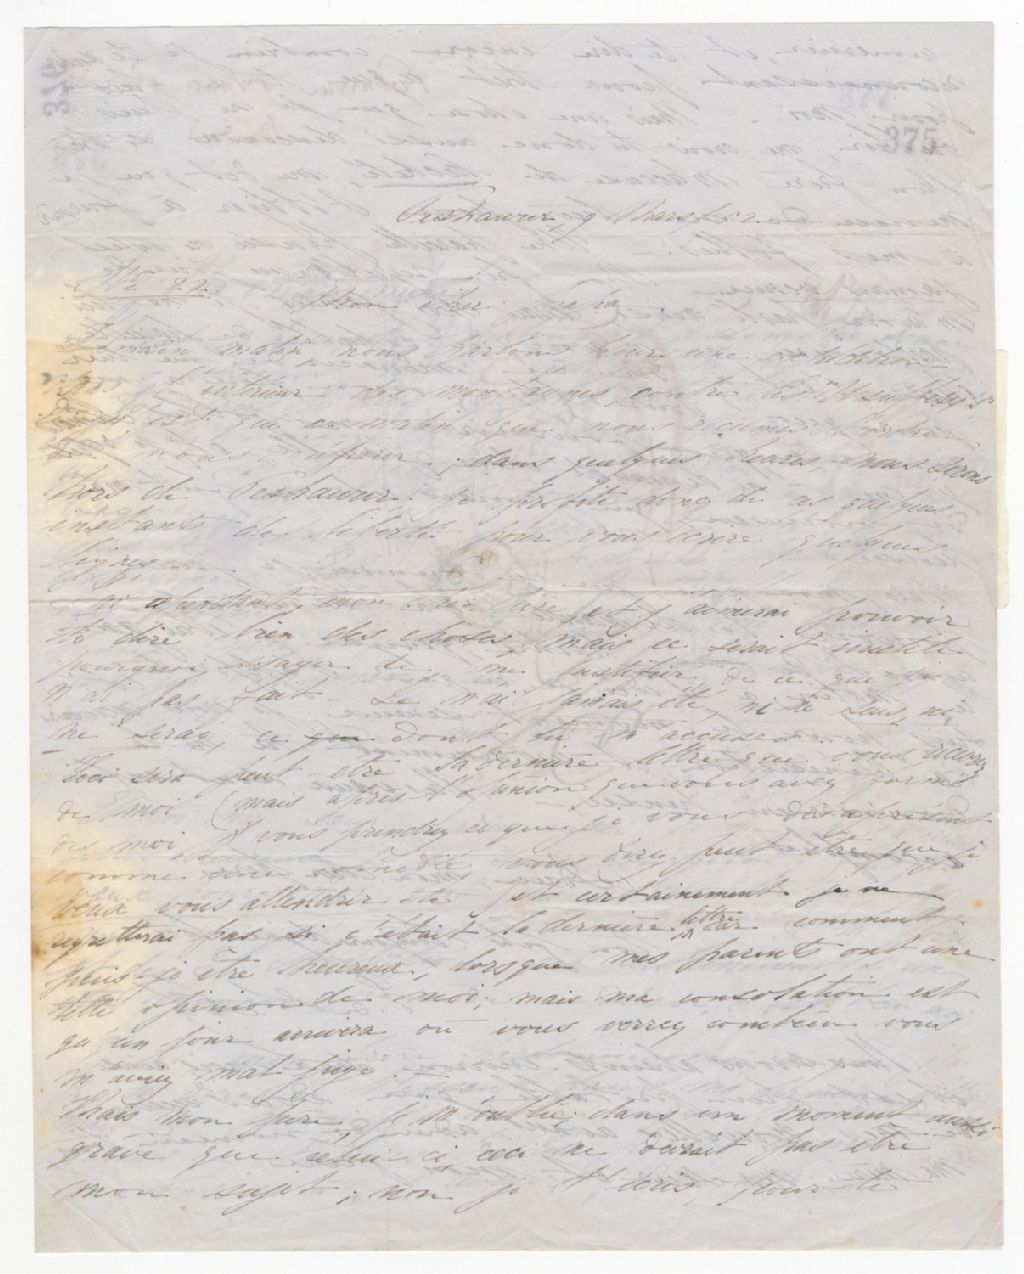 375
376
Peshawur, 9 Mars/52
No 22.
Mon cher Papa
Demain matin, nous partons pour une expédition
dans l'intérieur des montagnes, contre les
ce n'est que ce matin que nous reçumes l'ordre
de nous préparer; dans quelques heures, nous serons
hors de Peshawur. Je profite donc de ces quelques
instants de liberté pour vous écrire quelques
lignes.
Et pourtant, mon cher père, et j'aimerai pouvoir
te dire bien des choses, mais ce serait inutile
pourquoi essayer de me justifier de ce que je
n'ai pas fait. Je n'ai jamais été, ni le suis, ni
ne serai, ce dont tu m'accuses.
Ceci sera peut être la dernière lettre que vous recevrez
de moi (mais après l'opinion que vous avez formé
de moi, vous prendrez ce que je vous dis à présent
comme vous direz peut être que je
veux vous attendrir etc et certainement je ne
regretterai pas si c'était la dernière lettre car comment
puis-je être heureux, lorsque mes parents ont une
telle opinion de moi; mais ma consolation est
qu'un jour arrivera où vous verrez combien vous
m'aviez mal jugé. —
Mais mon père, je m'oublie; dans un moment aussi
grave que celui ci, ceci ne devrait pas être
mon sujet; non je t'écris, pour te